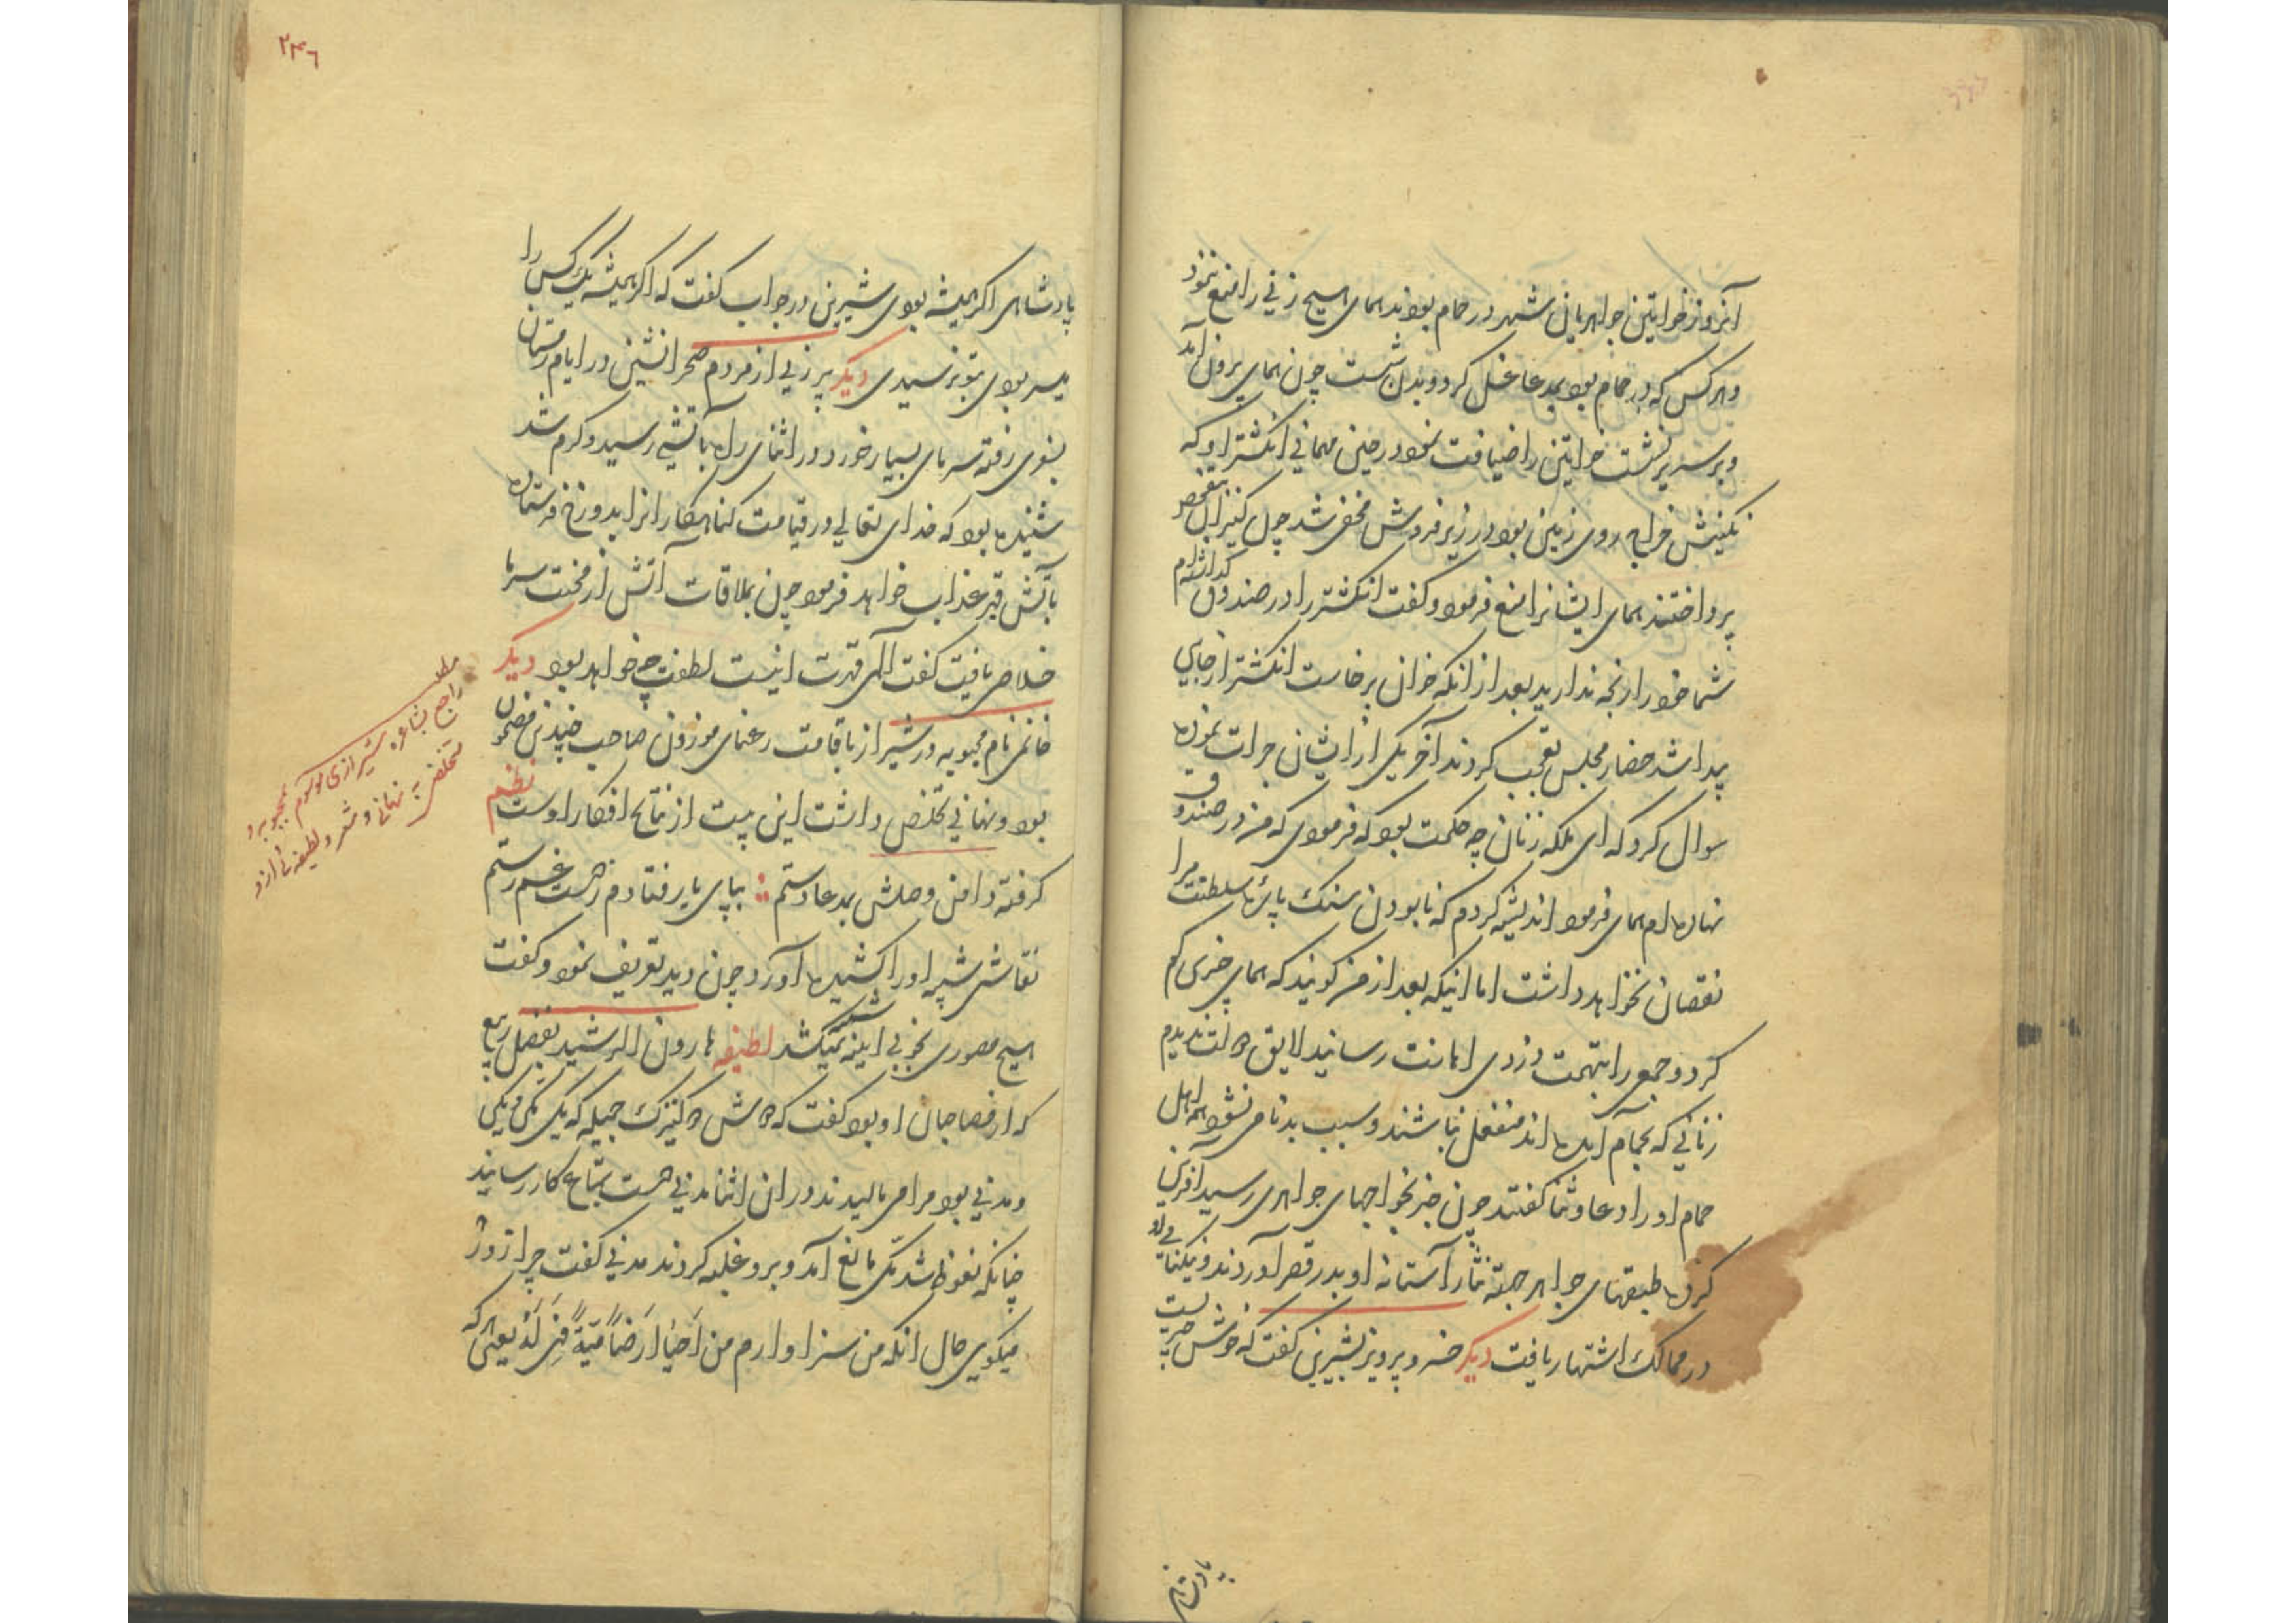 آنروز خواتین جواهریان شهر در حمام بودند همای هیچ زنی را منع ننمود
و هر کس که در حمام بود بمدعا غسل کرد و بدن شست چون همای برون آمد
و بر سریر نشست خواتین را ضیافت نمود در حین مهمانی انکشتر او که
نکینش خراج روی زمین بود در زیر فروش مخفی شد چون کنیزان بتفحص
پرداختند همای ایشانرا منع فرمود و کفت انکشتر را در صندوق کذاشته‌ام
شما خود را رنجه ندارید بعد از انکه خوان برخاست انکشتر از جایی
پیدا شد حضار مجلس تعجب کردند آخر یکی از ایشان جرات نموده
سوال کرد که ای ملکه زنان چه حکمت بود که فرمودی که من در صندوق
نهاده‌ام همای فرمود اندیشه کردم که نابودن سنک پاره سلطنت مرا
نقصان نخواهد داشت اما اینکه بعد از من کویند که همای چیزی کم
کرد و جمعی را بتهمت دزدی اهانت رسانید لایق دولت ندیدم
زنانی که بحمام آمده اند منفعل نباشند و سبب بدنامی نشود همه اهل
حمام او را دعا و ثنا کفتند چون خبر بخواجهای جواهری رسید آفرین
کرده طبقهای جواهر جهته نثار آستانه او بدر قصر آوردند و نیکنامی او
در ممالک اشتهار یافت دیکر خسرو پرویز بشیرین کفت که خوش چیزیست
پادشاهی
۲۴۶
پادشاهی اکر همیشه بودی شیرین در جواب کفت که اکر همیشه یک کس را
میسر بودی بتو نرسیدی دیکر پیر زنی از مردم صحرانشین در ایام زمستان
بسوی رفته سرمای بسیار خورد و در اثنای راه بآتشی رسید و کرم شد
شنیده بود که خدای تعالی در قیامت کناهکارانرا بدوزخ فرستاده
بآتش قهر عذاب خواهد فرمود چون بملاقات آتش از محنت سرما
خلاصی یافت کفت الهی قهرت اینست لطفت چه خواهد بود دیکر
خانمی نام محبوبه در شیراز با قامت رعنای موزون صاحب چندین مضمون
بود و نهانی تخلص داشت این بیت از نتایج افکار اوست نظم
کرفته دامن وصلش بمدعا دستم ؛ بپای یار فتادم ز دست غم رستم
نقاشی شبیه او را کشیده آورد چون دید تعریف نمود و کفت
هیچ مصوری بخوبی اینه نمیکشد لطیفه هارون الرشید بفضل ربیع
که از مصاحبان او بود کفت که دوش دو کنیزک جمیله که یکی مکی و یکی
مدنی بود مرا می مالیدند در ان اثنا مدنی دست بمتاع کار رسانید
چنانکه نعوظ شد مکی مانع آمد و برو غلبه کردند مدنی کفت چرا زور
میکوی حال انکه من سزاوارم من اَحیا ارضاً میّتةً فهی لَهُ یعنی هر که
مطلب
راجع بشاعره شیرازی موسوم بمحبوبه و
متخلص به نهانی و شعر و لطیفه‌ای از او